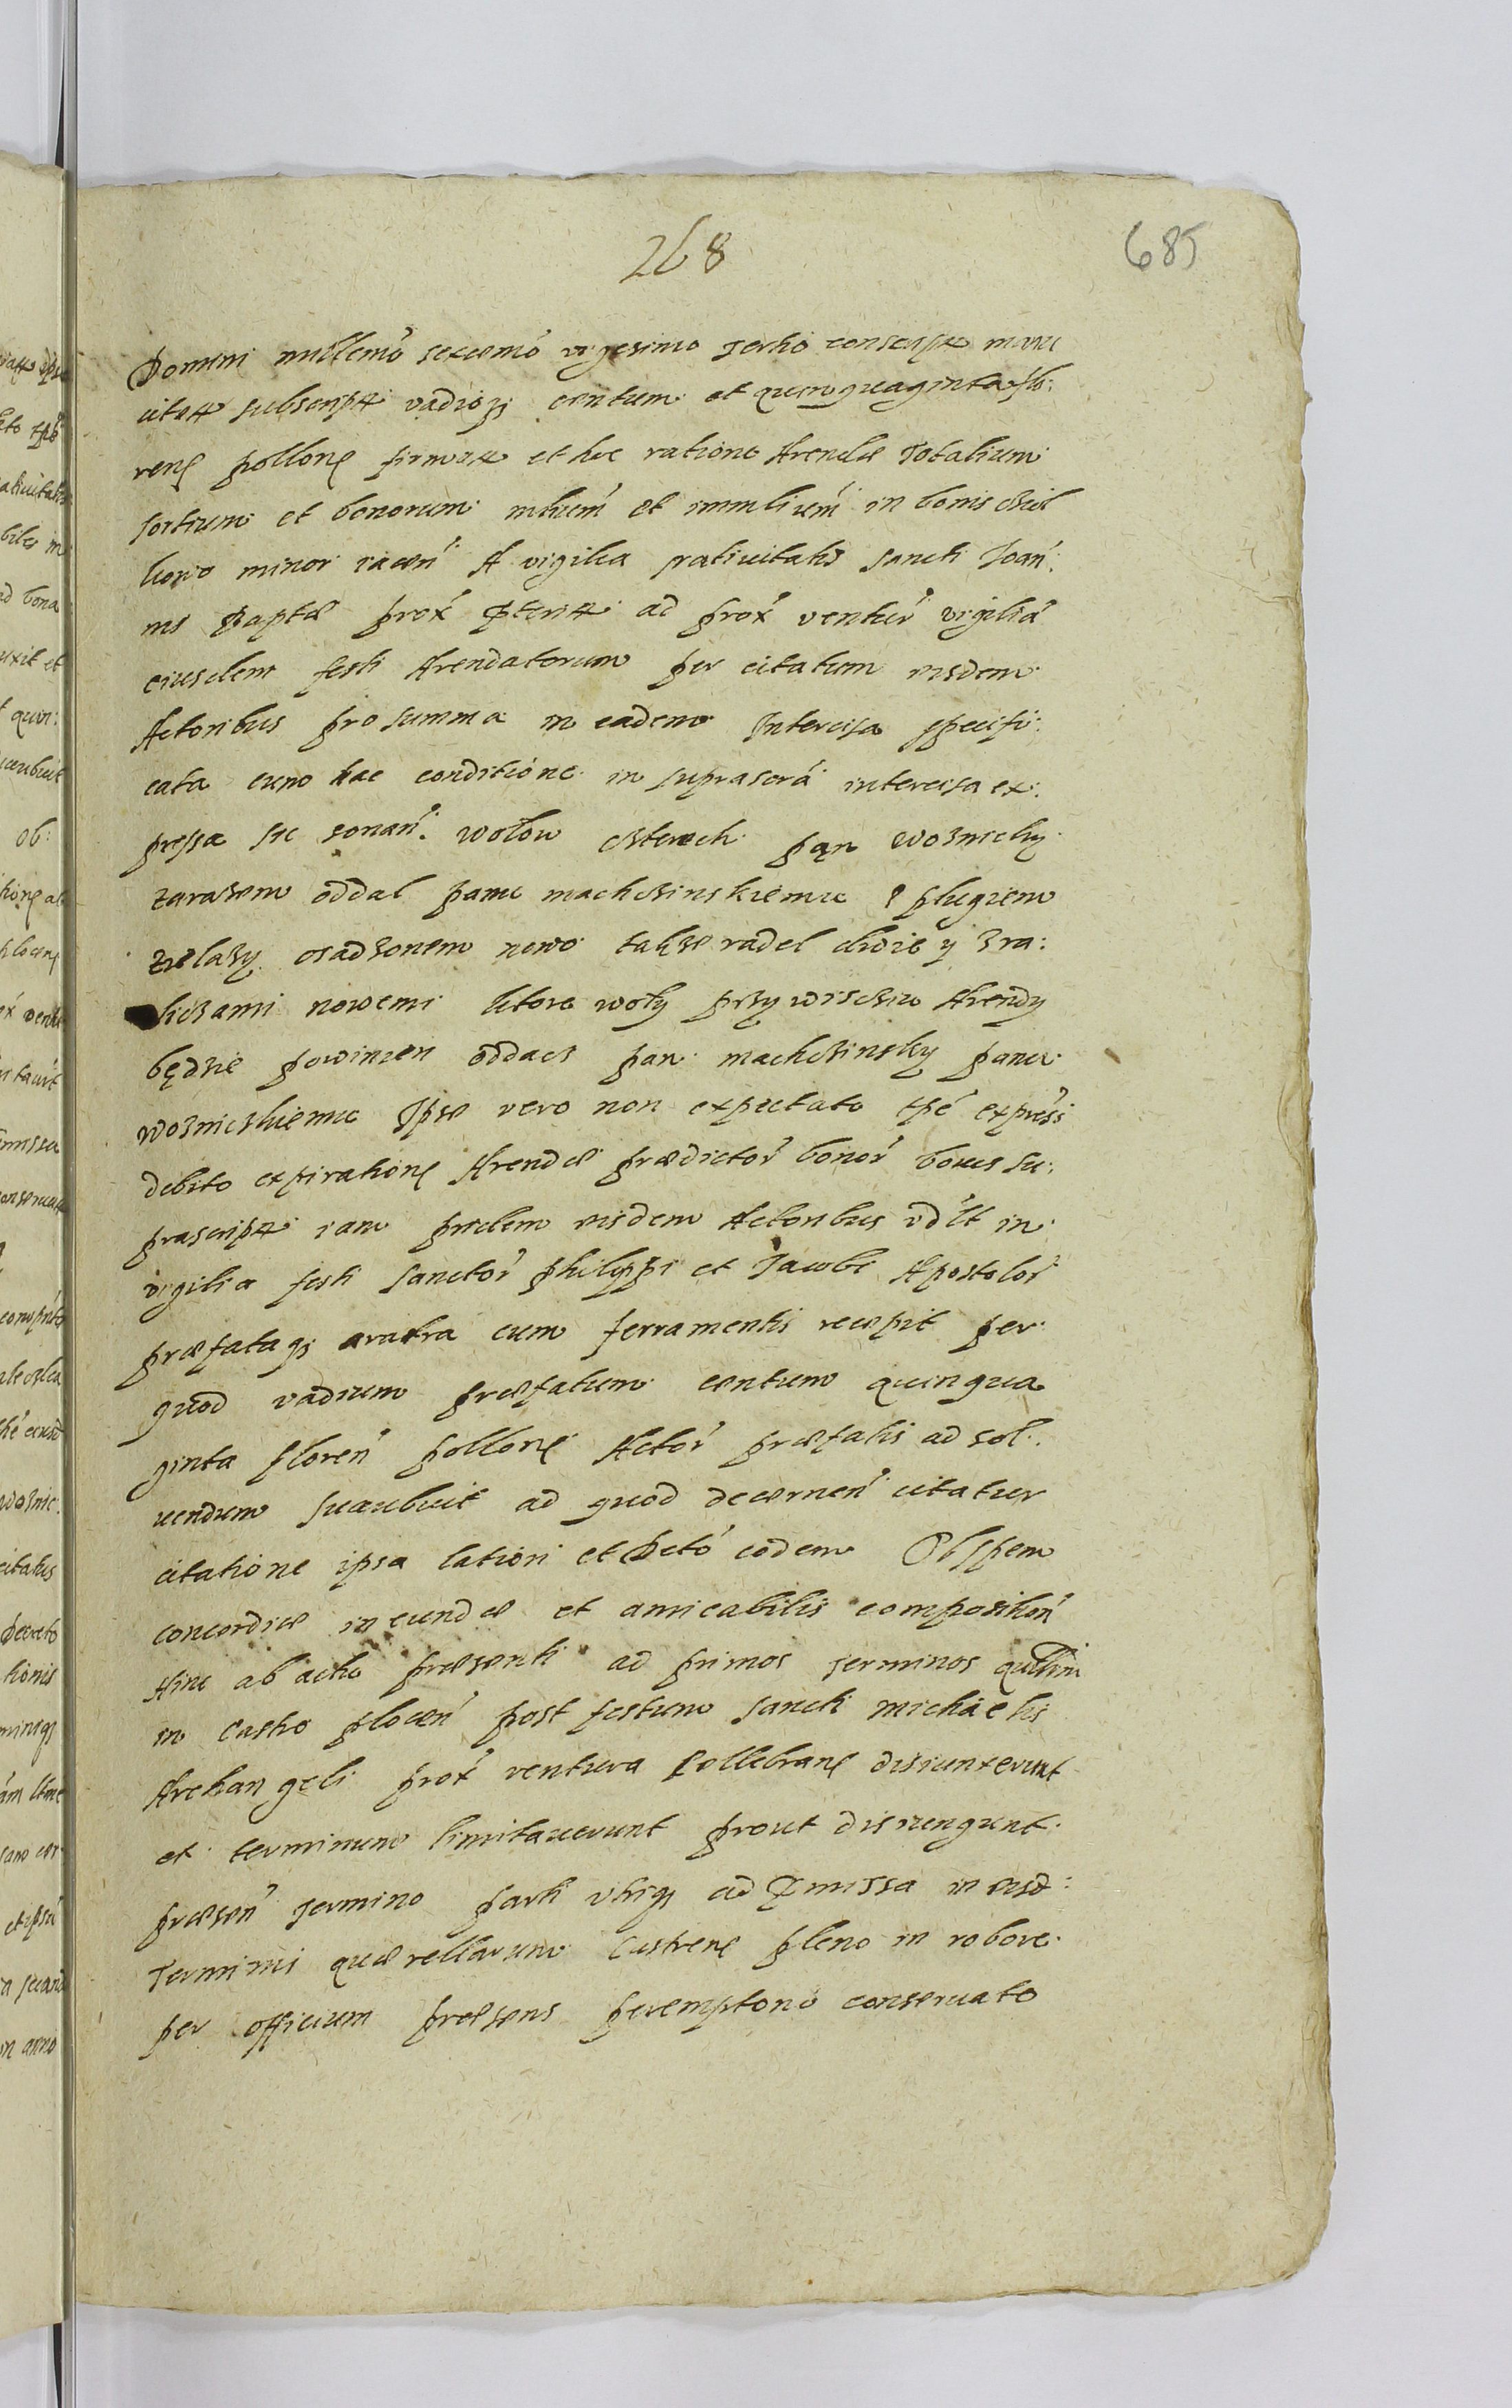 268
685
Domini millemo sexcemo vigesimo tertio conscripta manu
citati subscripta vadioqз centum et quinquaginta flo:
renς pollonς firmata et hoc ratione Arendæ Totalium
sortium et bonorum mbium et immlium in bonis
minor iacen A vigilia nativitatis sancti Joan:
nis Baptæ prox pterita ad prox ventur vigilia
eiusdem festi Arendatorum per citatum eisdem
Actoribus pro summa in eadem Intercisa specifi:
cata cum hac conditione in suprascra intercisa ex:
pressa sic sonan. wołow czterech pan Woznicky
zarazem oddal panu machczinskiemu s plugiem
zielazy osadzonem nowo takze radel dwie y zra:
dliczami nowemi ktore woły przy wisciu Arendy
będzie powinien oddacz pan machczinsky panu
Woznicskiemu Ipse vero non expectato tpe expressi
debito expirationς Arendæ prædictor bonor boues su:
prascripta iam pridem eisdem Actoribus vdlt in
vigilia festi sanctor philippi et Jacobi Apostolor
præfataqз aratra cum ferramentis recepit per
quod vadium præfatum centum quinqua
ginta floren pollonς Actor præfatis ad sol:
uendum succubuit ad quod decernen citatur
citatione ipsa latiori et Dcto eodem Ob spem
concordiæ ineundæ et amicabilis composition
Hinc ab actu præsenti ad primos Terminos qullrm
in Castro plocen post festum sancti Michaelis
Archangeli prox ventura Cellebranς disiunxerunt
et terminum limitauerunt prout disiungunt
præsen Termino parti vtriqз ad pmissa in eisd:
Terminis quærellarum Castrenς pleno in robore
per officium præsens peremptorio conseruato